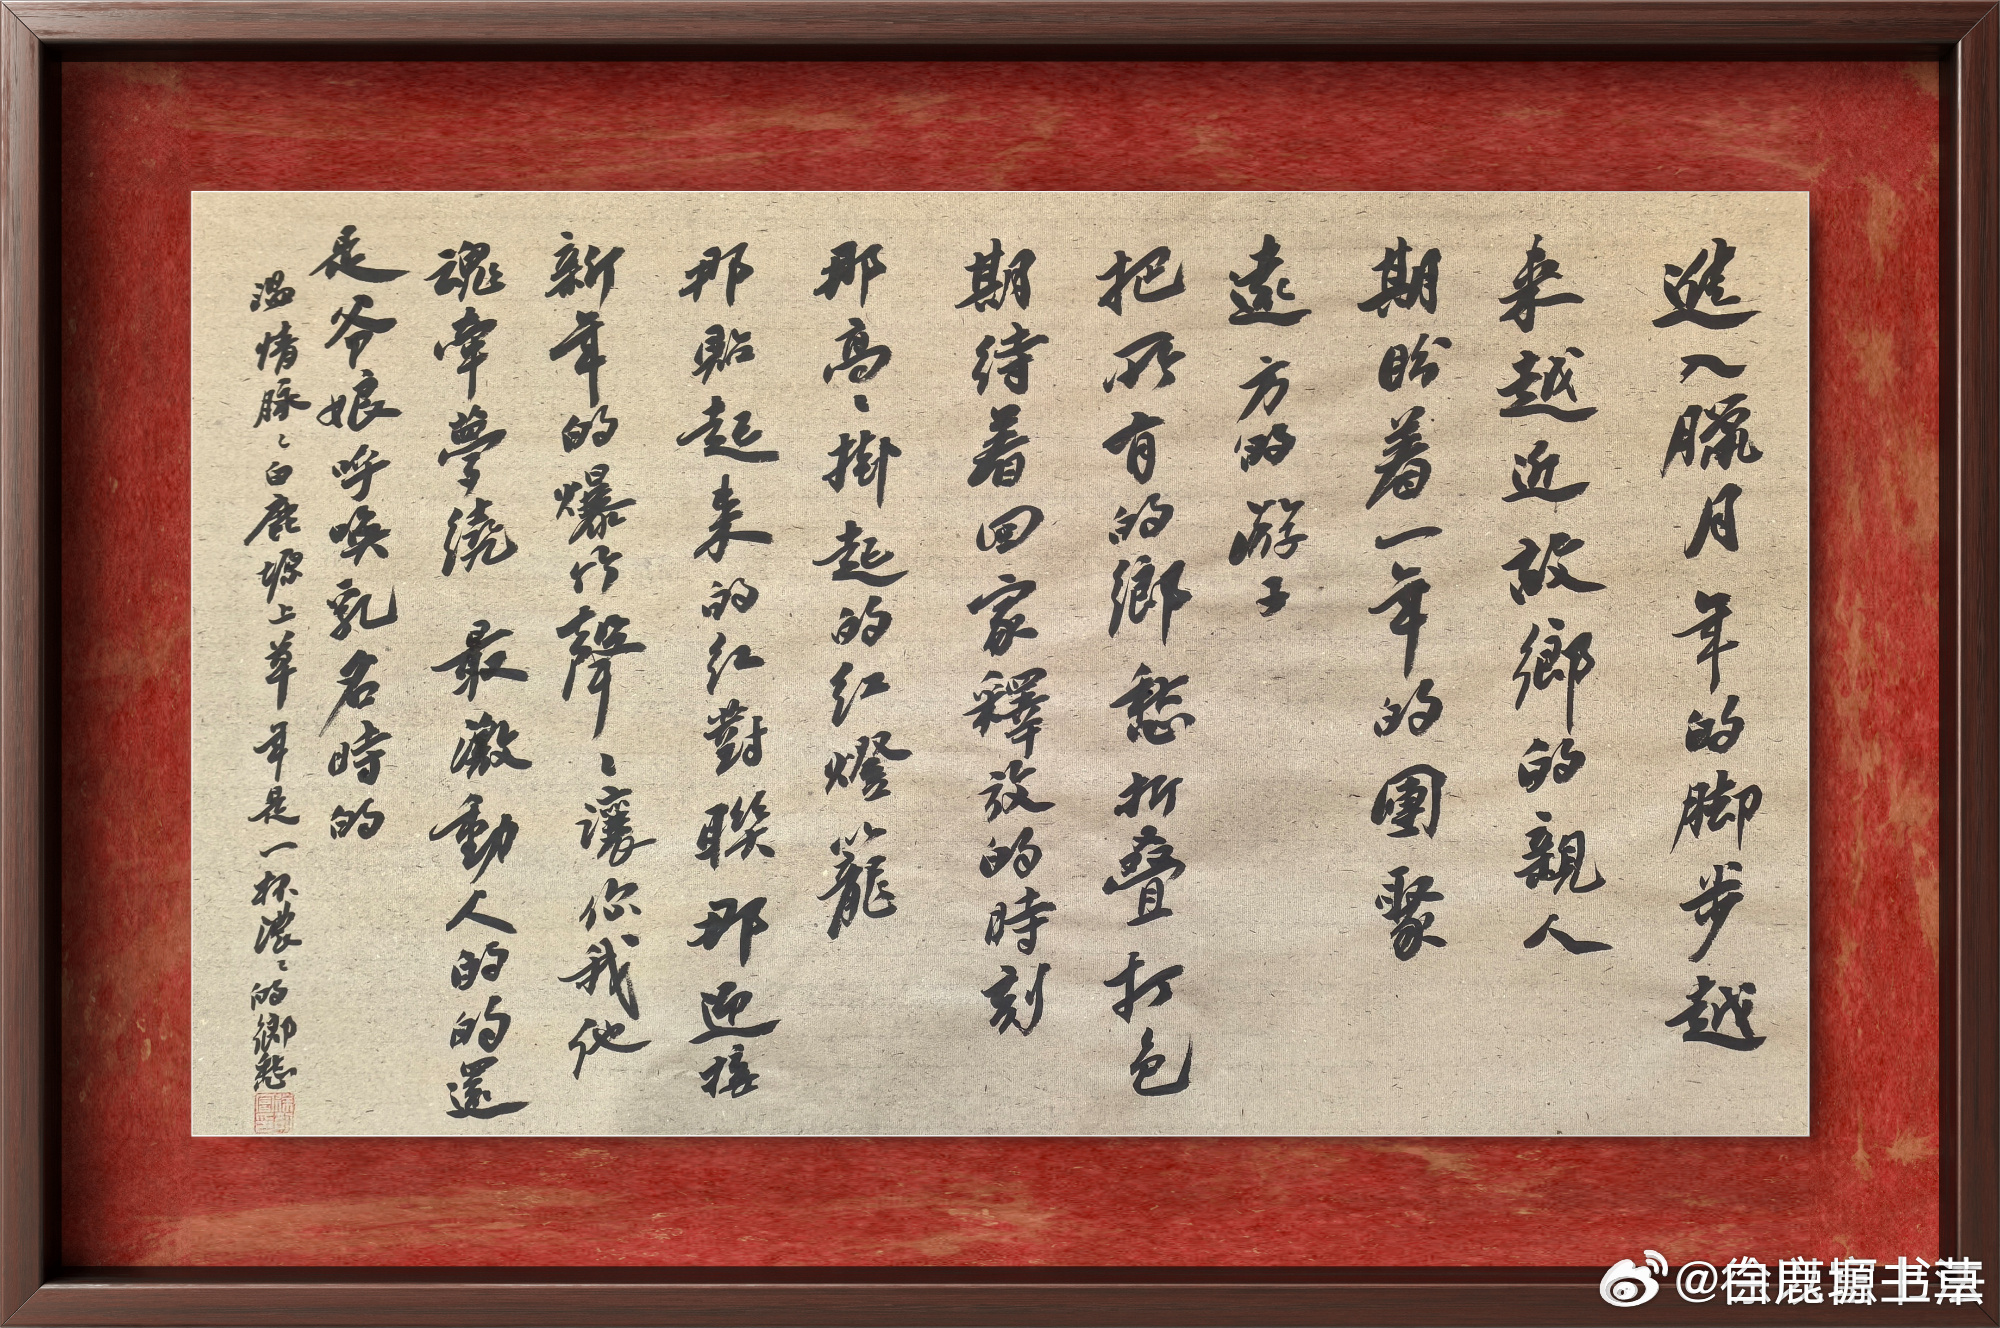 進入臘月年的脚步越
来越近故鄉的親人
期盼着一年的團聚
遠方的游子
把所有的鄉愁折叠打包
期待着回家釋放的時刻
那高〻掛起的红燈籠
那貼起来的红對聯那迎接
新年的爆竹聲〻讓你我他
魂牽夢繞 最激動人的的還
是爷娘呼唤乳名時的
温情脉〻白鹿塬上草年是一杯濃〻的鄉愁
@徐鹿塬书草